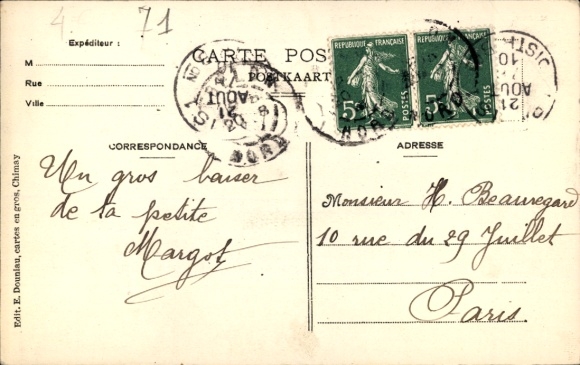 4. 71
Expéditeur :
M
Rue
Ville
CARTE POS
POSTKAART
REPUBLIQUE FRANÇAISE
5
POSTES
REPUBLIQUE FRANÇAISE
5
POSTES
21
AOUT
NORD
21
AOU
CORRESPONDANCE
ADRESSE
Un gros baiser
de ta petite
Margot
Monsieur H. Beauregard
10 rue du 29 Juillet
Paris.
Edit. E. Douniau, cartes en gros, Chimay